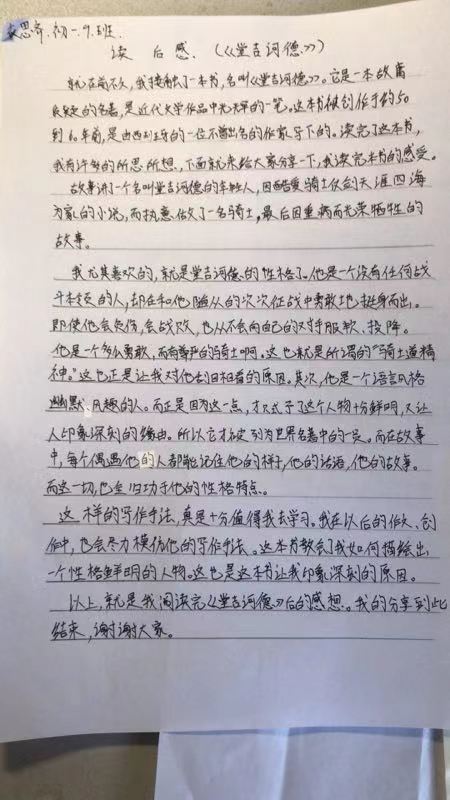 思齐.初一.9.班.
读 后感.(《堂吉诃德》)
就在前不久,我接触了一本书,名叫《堂吉诃德》。它是一本故富
的名著,是近代文学作品中光采的一笔。这本书被创作于约50
到60年前,是由西班牙的一位不曾出名的作家写下的。读完了这本书,
我有许多的所思所想,下面就来给大家分享一下,我读完本书的感受。
故事讲了一个名叫堂吉诃德的年轻人,因酷爱骑士仗剑天涯四海
为家的小说,而执意做了一名骑士,最后因重病而光荣牺牲的
故事。
我尤其喜欢的,就是堂吉诃德的性格了。他是一个没有任何战
斗本领的人,却在和他随从的次次征战中勇敢地挺身而出。
即使他会负伤,会战败,也从不会向自己的对手服软、投降。
他是一个多么勇敢,而有尊严的骑士啊。这也就是所谓的“骑士道精
神。”这也正是让我对他刮目相看的原因。其次,他是一个语言风格
幽默、风趣的人。而正是因为这一点,才只式予了这个人物十分鲜明,又让
人印象深刻的缘由。所以它才被列为世界名著中的一员。而在故事
中,每个偶遇他的人都能记住他的样子,他的话语,他的故事。
而这一切,也全归功于他的性格特点。
这样的写作手法,真是十分值得我去学习。我在以后的作文、创
作中,也会尽力模仿他的写作手法。这本书教会了我如何描绘出
一个性格鲜明的人物。这也是这本书让我印象深刻的原因。
以上,就是我阅读完《堂吉诃德》后的感想。我的分享到此
结束,谢谢大家。